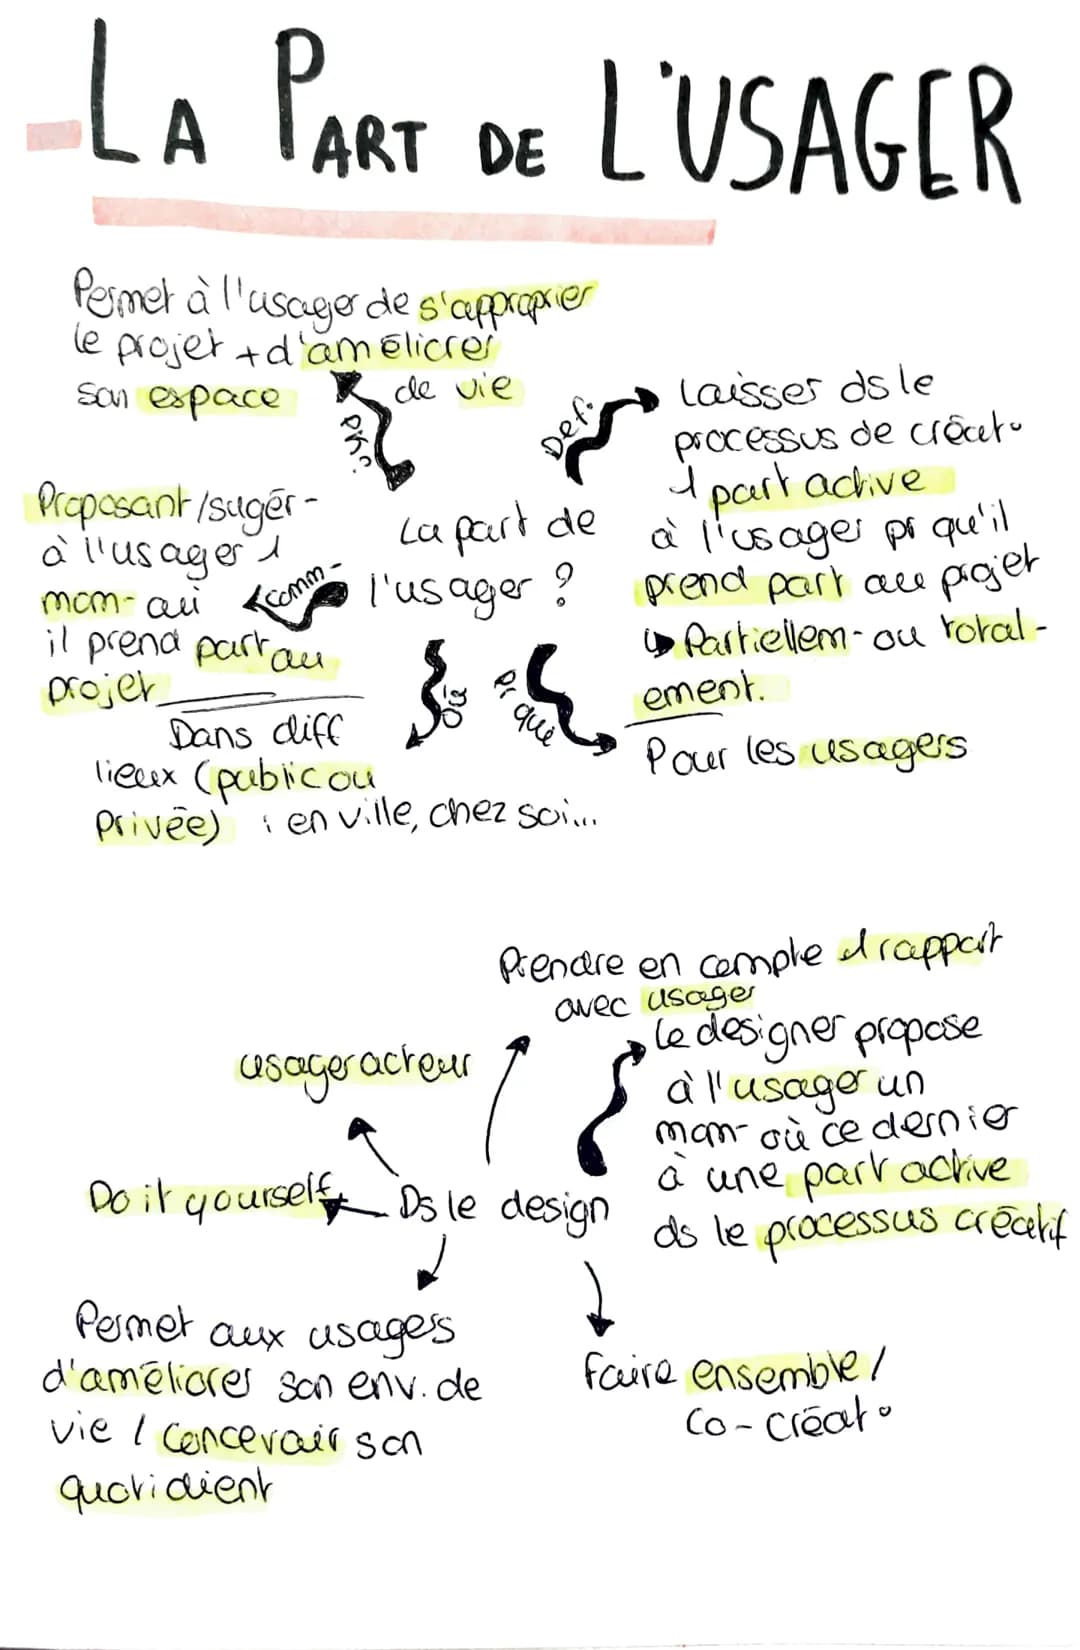 LA PART DE L'USAGER
Permet à l'usager de s'approprier
le projet + d'améliorer
son espace
de vie
Def.
Laisser ds le
processus de créat°
1 part active
à l'usager pr qu'il
prend part au projet
↳ Partiellem- ou total-
ement.
Proposant/sugér-
à l'usager 1
mom- où
il prend part au
projet
comm-
La part de
l'usager ?
Où
Pr qui
Dans diff
lieux (public ou
Privée) : en ville, chez soi...
Pour les usagers
Prendre en compte 1 rapport
avec usager
usager acteur
le designer propose
à l'usager un
mom- où ce dernier
à une part active
ds le processus créatif
Do it yourself
Ds le design
Permet aux usagers
d'améliorer son env. de
vie / Concevoir son
quotidient
Faire ensemble /
Co-créat°